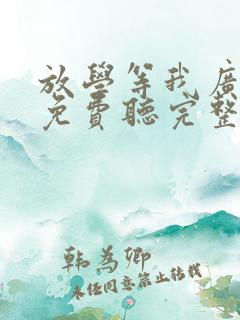 放學等我廣
免費聽完整
韩為卿
未經同意禁止轉載